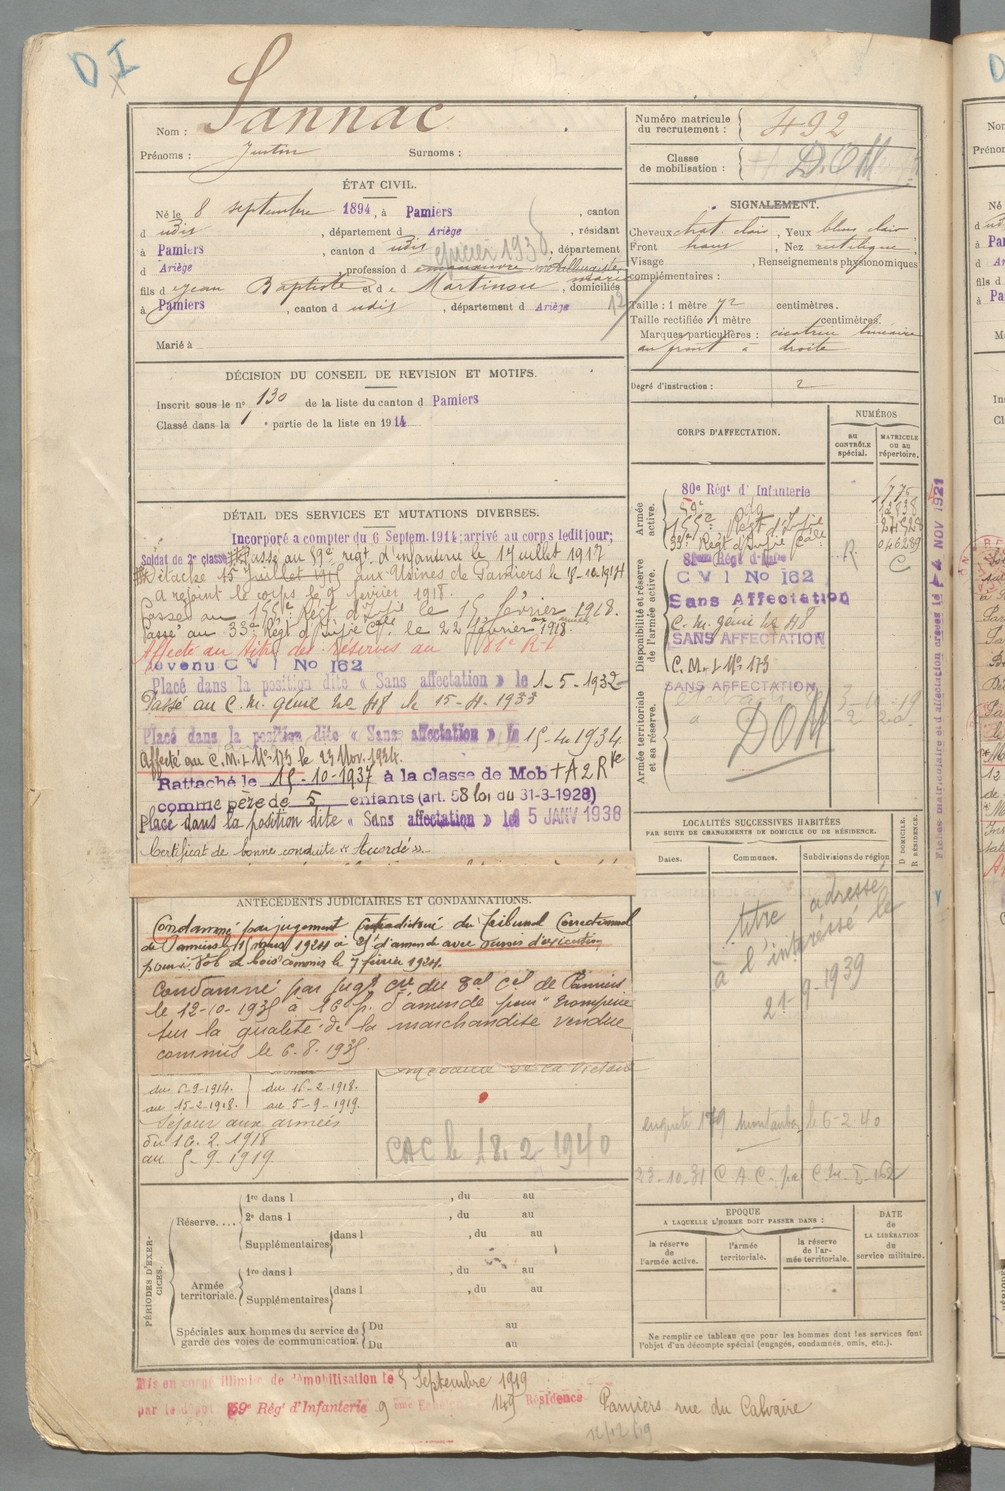 D I
Nom : Sannac
Prénoms : Justin Surnoms :
Numéro matricule du recrutement : 492
Classe de mobilisation : D.O.M
ÉTAT CIVIL.
Né le 8 septembre 1894, à Pamiers, canton
d udit, département d Ariège, résidant
à Pamiers, canton d udit, département
épicier 1938
d Ariège, profession d manœuvre métallurgiste
fils d e Jean Baptiste et d e Martinou, domiciliés
à Pamiers, canton d udit, département d Ariège
Marié à
SIGNALEMENT.
Cheveux chat clair, Yeux bleu clair
Front haut, Nez rectiligne
Visage , Renseignements physionomiques
complémentaires :
Taille : 1 mètre 72 centimètres.
Taille rectifiée 1 mètre centimètres.
Marques particulières : cicatrice linéaire
au front à droite
Degré d'instruction : 2
DÉCISION DU CONSEIL DE REVISION ET MOTIFS.
Inscrit sous le n° 130 de la liste du canton d Pamiers
Classé dans la 1 e partie de la liste en 1914
CORPS D'AFFECTATION.
NUMÉROS
au CONTRÔLE spécial.
MATRICULE ou au répertoire.
Armée active.
80e Régt d'Infanterie
59e do
Disponibilité et réserve de l'armée active.
81eme Régt d'Infie
C V I No 162
Sans Affectation
C. m. génie No 48
SANS AFFECTATION
C. M. I. No 173
Armée territoriale et sa réserve.
SANS AFFECTATION
DOM
Fiches matriculaire et d'affectation créées le 4 NOV 1921
DÉTAIL DES SERVICES ET MUTATIONS DIVERSES.
Incorporé a compter du 6 Septem. 1914; arrivé au corps ledit jour;
Soldat de 2e classe Passé au 59e régt d'infanterie le 1 juillet 1917
Détaché 15 Juillet 1915 aux Usines de Pamiers le
a rejoint le corps le 9 février 1918.
Passé au Régt d'Infie le 15 février 1918.
Passé au 33e Régt d'Infie Cale le 22 février 1918.
Affecté au titre des réserves au 81e R I
Devenu C V I No 162
Placé dans la position dite « Sans affectation » le 1-5-1932
Passé au C. m. génie No 48 le 15-4-1933
Placé dans la position dite « Sans affectation » le 15-4-1934
Affecté au C.M.I No 173 le 23 Nov. 1934.
Rattaché le 15-10-1937 à la classe de Mob
comme père de 5 enfants (art. 58 loi du 31-3-1928)
Placé dans la position dite « Sans affectation » le 15 JANV 1938
Certificat de bonne conduite « Accordé »
ANTÉCÉDENTS JUDICIAIRES ET CONDAMNATIONS.
Condamné par jugement Contradictoire du Tribunal Correctionnel
de Pamiers le 11 mars 1924 à 25f d'amende avec sursis d'exécution
pour : Vol de bois commis le 7 février 1924.
Condamné par jugt cre du Tal Cel de Pamiers
le 12-10-1935 à 16 f. d'amende pour "tromperie
sur la qualité de la marchandise vendue
commis le 6.8.1935.
Médaille de la Victoire
du 6-9-1914. du 16-2-1918.
au 15-2-1918. au 5-9-1919.
Séjour aux armées
du 16.2.1918
au 5-9-1919
CAC le 18.2-1940
LOCALITÉS SUCCESSIVES HABITÉES
PAR SUITE DE CHANGEMENTS DE DOMICILE OU DE RÉSIDENCE.
Dates. Communes. Subdivisions de région
D DOMICILE.
R RÉSIDENCE.
titre adressé
à l'intéressé le
21-9-1939
enquete 179 montauban le 6-2-40
23-10-31 C A C
PÉRIODES D'EXERCICES.
Réserve....
1re dans l , du au
2e dans l , du au
Supplémentaires dans l , du au
Armée territoriale.
1re dans l , du au
Supplémentaires dans l , du au
Spéciales aux hommes du service de garde des voies de communication.
Du au
Du au
EPOQUE
A LAQUELLE L'HOMME DOIT PASSER DANS :
la réserve de l'armée active.
l'armée territoriale.
la réserve de l'armée territoriale.
DATE de LA LIBÉRATION du service militaire.
Ne remplir ce tableau que pour les hommes dont les services font
l'objet d'un décompte spécial (engagés, condamnés, omis, etc.).
Mis en congé illimité de démobilisation le 5 Septembre 1919
par le dépôt 59e Régt d'Infanterie 9 eme Echelon 149 Résidence Pamiers rue du Calvaire